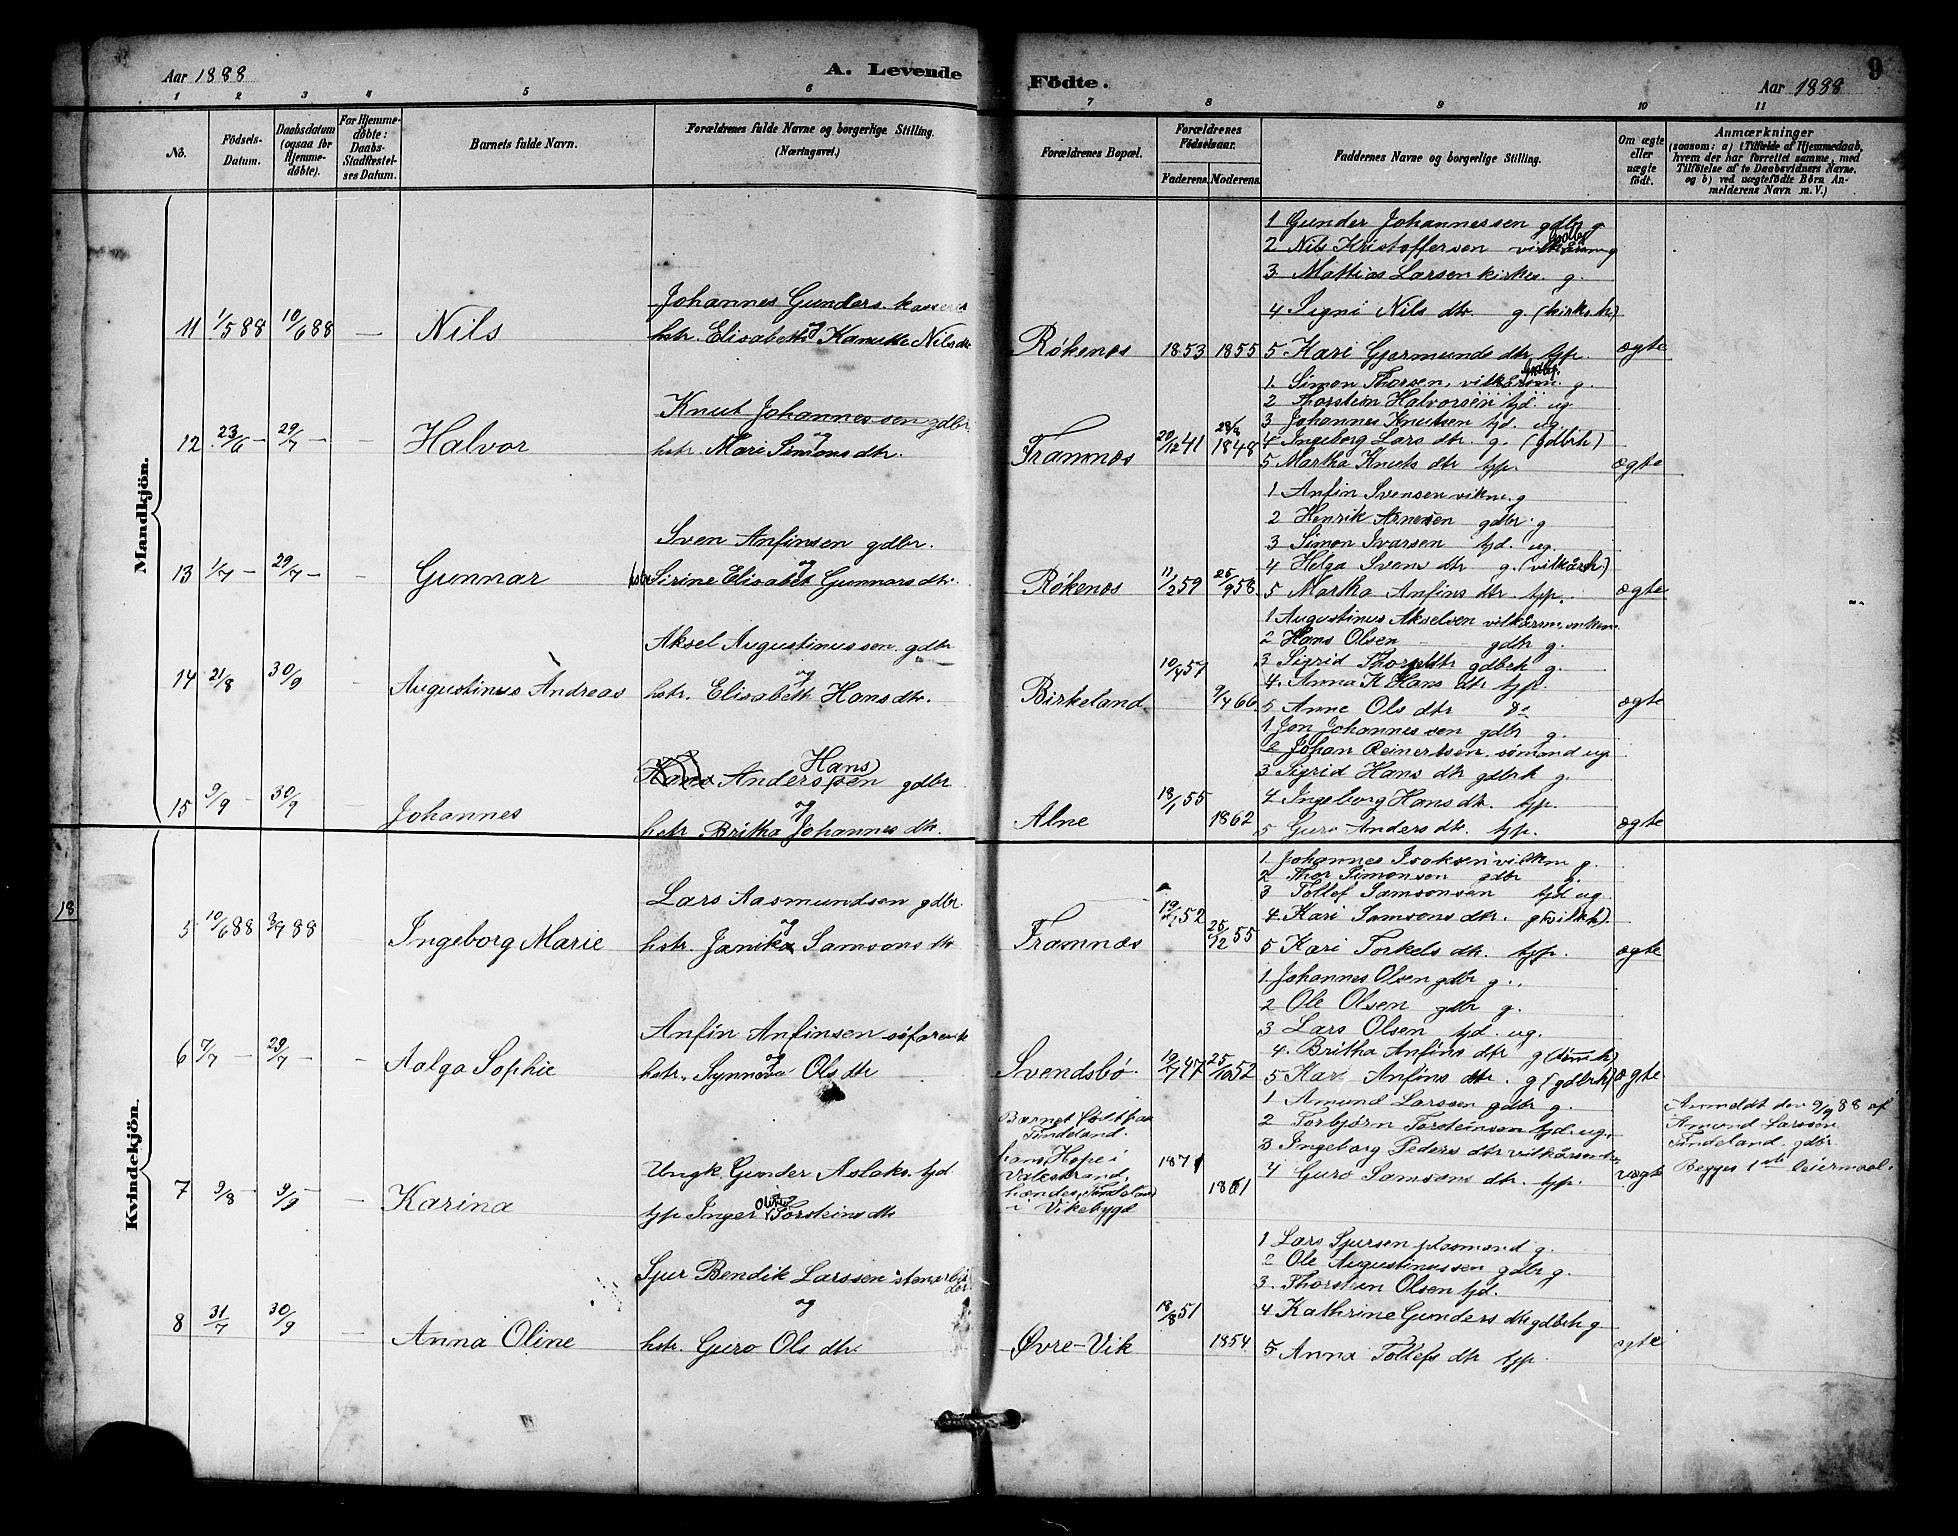 Aar 1888
A. Levende
Födte.
Aar 1888
9
1 2 3 4 5 6 7 8 9 10 11
No.
Födsels-Datum.
Daabsdatum (ogsaa for Hjemmedöbte).
For Hjemmedöbte: Daabs-Stadfæstelses Datum.
Barnets fulde Navn.
Forældrenes fulde Navne og borgerlige Stilling. (Næringsvei.)
Forældrenes Bopæl.
Forældrenes Födselsaar.
Faderens. Moderens.
Faddernes Navne og borgerlige Stilling.
Om ægte eller uægte födt.
Anmærkninger
(saasom: a) i Tilfælde af Hjemmedaab, hvem der har forrettet samme, med Tilföielse af to Daabsvidners Navne, og b) ved uægtefödte Börn Anmelderens Navn m. V.)
Mandkjön.
11 1/5 88 10/6 88 — Nils
Johannes Gunders.
og
hstr. Elisabeth Kanutte Nilsdtr
Røkenes 1853 1855
1 Gunder Johannessen gdbr g
2 Nils Kristoffersen
3 Mattias Larsen kirkes. g.
4 Signi Nils dtr g (kirks.k)
5 Kari Gjermunds dtr tjp.
ægte
12 23/6 — 29/7 — — Halvor
Knut Johannessen gdbr
og
hstr. Mari Simons dtr.
Framnæs 20/12 41 1848
1. Simon Thorsen, g.
2 Thorstein Halvorsen tjd. ug.
3 Johannes Knutsen tjd. ug.
4 Ingeborg Lars dtr. g. (gdbrk)
5 Martha Knuts dtr tjp.
ægte
13 1/7 — 29/7 — — Gunnar
Sven Anfinsen gdbr.
og
hstr Sirine Elisabet Gunnars dtr.
Røkenes 11/2 59 25/9 58
1 Anfin Svensen vikm. g
2 Henrik Arnesen gdbr. g
3 Simon Ivarsen tjd. ug.
4 Helga Svens dtr g. (vilkårsk)
5 Martha Anfins dtr tjp.
ægte
14 21/8 30/9 — Augustinus Andreas
Aksel Augustinussen gdbr
og
hstr. Elisabeth Hansdtr.
Birkeland 10/4 57 9/4 66
1 Augustinus Akselsen vilkårsm.
2 Hans Olsen — gdbr g.
3 Sigrid gdbrk g.
4. Anna K Hans dtr tjp.
5 Anne Ols dtr Do
ægte
15 9/9 — 30/9 — Johannes
Hans
Anderssen gdbr
og
hstr. Britha Johannes dtr.
Alne 18/1 55 1862
1 Jon Johannessen gdbr g.
2 Johan Reinertsen, sömand ug
3 Sigrid Hans dtr gdbrk g.
4 Ingeborg Hans dtr. tjp.
5 Guro Anders dtr. tjp.
ægte
Kvindekjön.
18
5 10/6 88 88 Ingeborg Marie
Lars Aasmundsen gdbr
og
hstr. Janika Samsons dtr
Framnæs 52 25/12 55
1 Johannes Isaksen vilkm g.
2 Thor Simonsen gdbr g.
3 Tollef Samsonsen tjd ug.
4 Kari Samsons dtr.
5 Kari Torkels dtr. tjp.
ægte
6 7/7 — 29/7 — — Aalga Sophie
Anfin Anfinsen
og
hstr. Synnøva Ols dtr
Svendsbö 47 25/10 52
1 Johannes Olsen gdbr g.
2 Ole Olsen gdbr g.
3 Lars Olsen tjd. ug.
4. Britha Anfins dtr g
5 Kari Anfins dtr. g (gdbrk)
ægte
7 9/8 — 9/9 — — Karina
Ungk. Gunder Aslaks. tjd
tjp Inger Torsteins dtr
Barnet födt paa
Tindeland.
hans, Hope i
Valestrand,
hendes, Tindeland
i Vikebygd
1871 1861
1 Amund Larssen gdbr g.
2 Torbjörn Torsteinsen tjd. ug.
3 Ingeborg Peders dtr
4 Guro Samsons dtr. tjp.
uægte
Anmeldt den 9/9 88 af
Amund Larssen
Tindeland. gdbr.
Begges 1ste leiermaal.
8 31/7 30/9 — Anna Oline
Sjur Bendik Larssen stenarbeider
og
hstr. Guro Ols dtr.
Øvre-Vik 18/8 51 1854
1 Lars Sjursen plasmand g.
2 Ole Augustinussen gdbr g.
3. Thorstein Olsen tjd.
4 Kathrine Gunders dtr gdbrk g
5 Anna Tollefs dtr tjp.
ægte